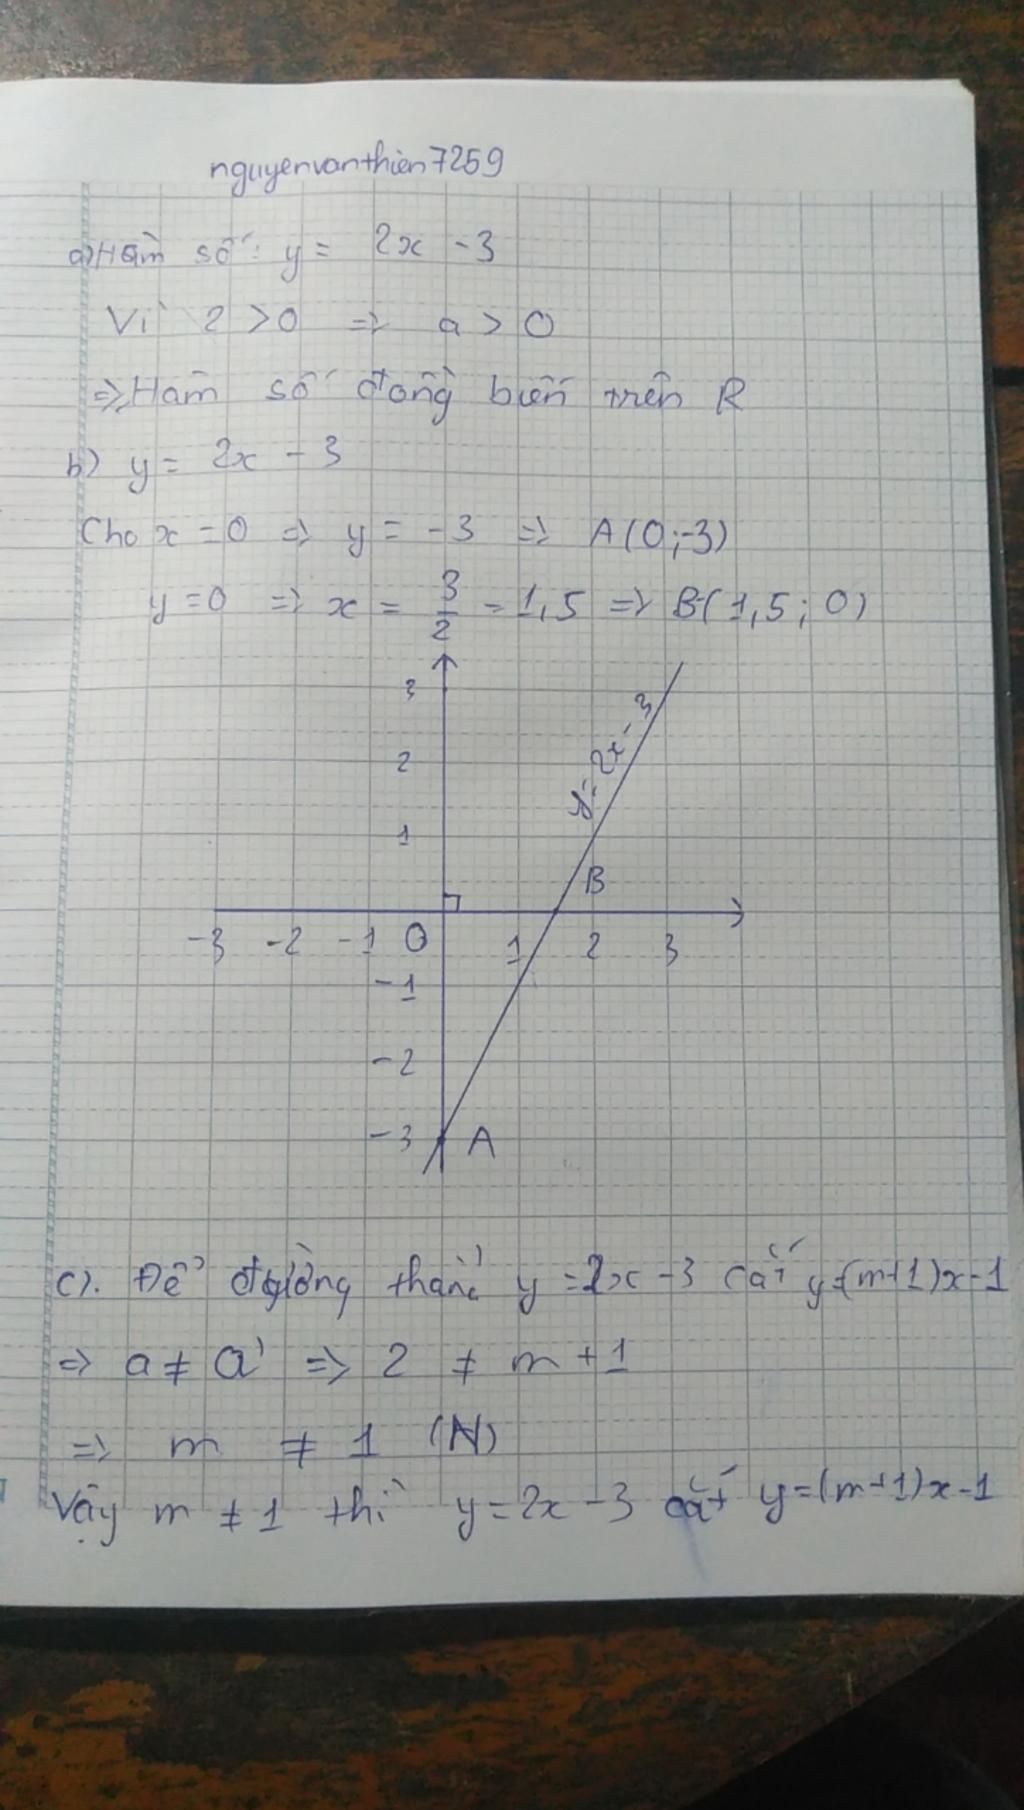 nguyenvanthien7259
a) Hàm số: y = 2x - 3
Vì 2 > 0 => a > 0
=> Hàm số đồng biến trên R
b) y = 2x - 3
Cho x = 0 => y = -3 => A(0;-3)
y = 0 => x = 3/2 = 1,5 => B(1,5; 0)
3
2
1
y = 2x - 3
B
-3 -2 -1 O 1 2 3
-1
-2
-3 A
c). Để đường thẳng y = 2x - 3 cắt y=(m+1)x-1
=> a ≠ a' => 2 ≠ m + 1
=> m ≠ 1 (N)
Vậy m ≠ 1 thì y = 2x - 3 cắt y = (m+1)x-1